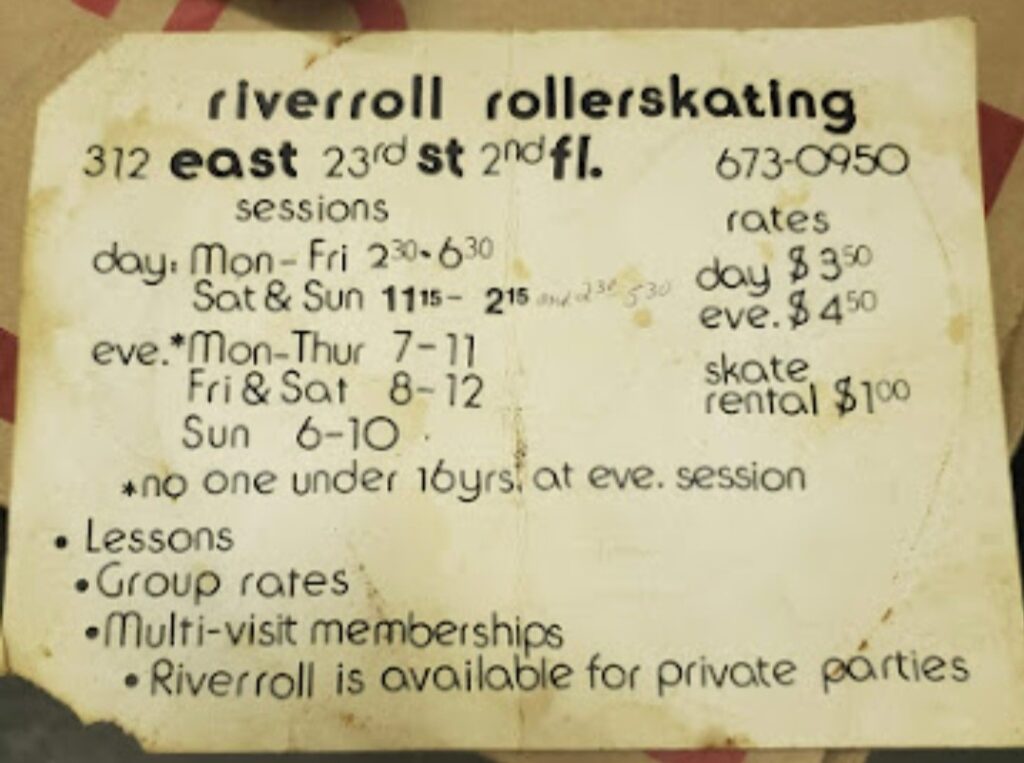 riverroll rollerskating
312 east 23rd st 2nd fl. 673-0950
sessions
day: Mon-Fri 2³⁰-6³⁰
Sat & Sun 11¹⁵- 2¹⁵ and 2³⁰ 5³⁰
eve.*Mon-Thur 7-11
Fri & Sat 8-12
Sun 6-10
rates
day $3⁵⁰
eve. $4⁵⁰
skate
rental $1⁰⁰
*no one under 16yrs. at eve. session
• Lessons
• Group rates
• Multi-visit memberships
• Riverroll is available for private parties